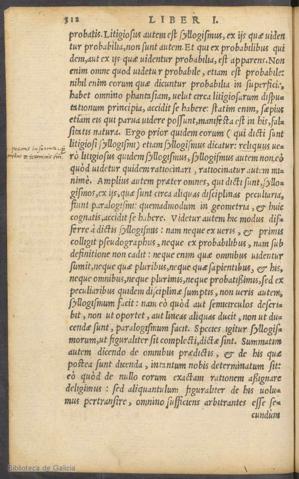 312 LIBER I.
probatis. Litigiosus autem est syllogismus, ex ijs quæ viden
tur probabilia, non sunt autem. Et qui ex probabilibus qui
dem, aut ex ijs quæ videntur probabilia, est apparens. Non
enim omne quod videtur probabile, etiam est probabile:
nihil enim eorum quæ dicuntur probabilia in superficie,
habet omnino phantasiam, velut circa litigiosarum dispu
tationum principia, accidit se habere: statim enim, sæpius
etiam eis qui parua videre possunt, manifesta est in his, fal
sitatis natura. Ergo prior quidem eorum (qui dicti sunt
litigiosi syllogismi) etiam syllogismus dicatur: reliquus ve
rò litigiosus quidem syllogismus, syllogismus autem non, eò
quòd videtur quidem ratiocinari, ratiocinatur autem mi
nimè. Amplius autem præter omnes, qui dicti sunt, syllo-
gismos, ex ijs, quæ sunt circa aliquas disciplinas peculiaria,
fiunt paralogismi: quemadmodum in geometria, & huic
cognatis, accidit se habere. Videtur autem hic modus dif-
ferre à dictis syllogismis: nam neque ex veris, & primis
colligit pseudographus, neque ex probabilibus, nam sub
definitione non cadit: neque enim quæ omnibus videntur
sumit, neque quæ pluribus, neque quæ sapientibus, & his,
neque omnibus, neque plurimis, neque probatißimis, sed ex
peculiaribus quidem disciplinæ sumptis, non veris autem,
syllogismum facit: nam eò quòd aut semicirculos descri-
bit, non vt oportet, aut lineas aliquas ducit, non vt du-
cendæ sunt, paralogismum facit. Species igitur syllogis-
morum, vt figuraliter sit complecti, dictæ sint. Summatim
autem dicendo de omnibus prædictis, & de his quæ
postea sunt dicenda, intantum nobis determinatum sit:
eò quòd de nullo eorum exactam rationem aßignare
deligimus: sed aliquantulum figuraliter de his volu-
mus pertransire, omnino sufficiens arbitrantes esse se-
cundùm
Biblioteca de Galicia